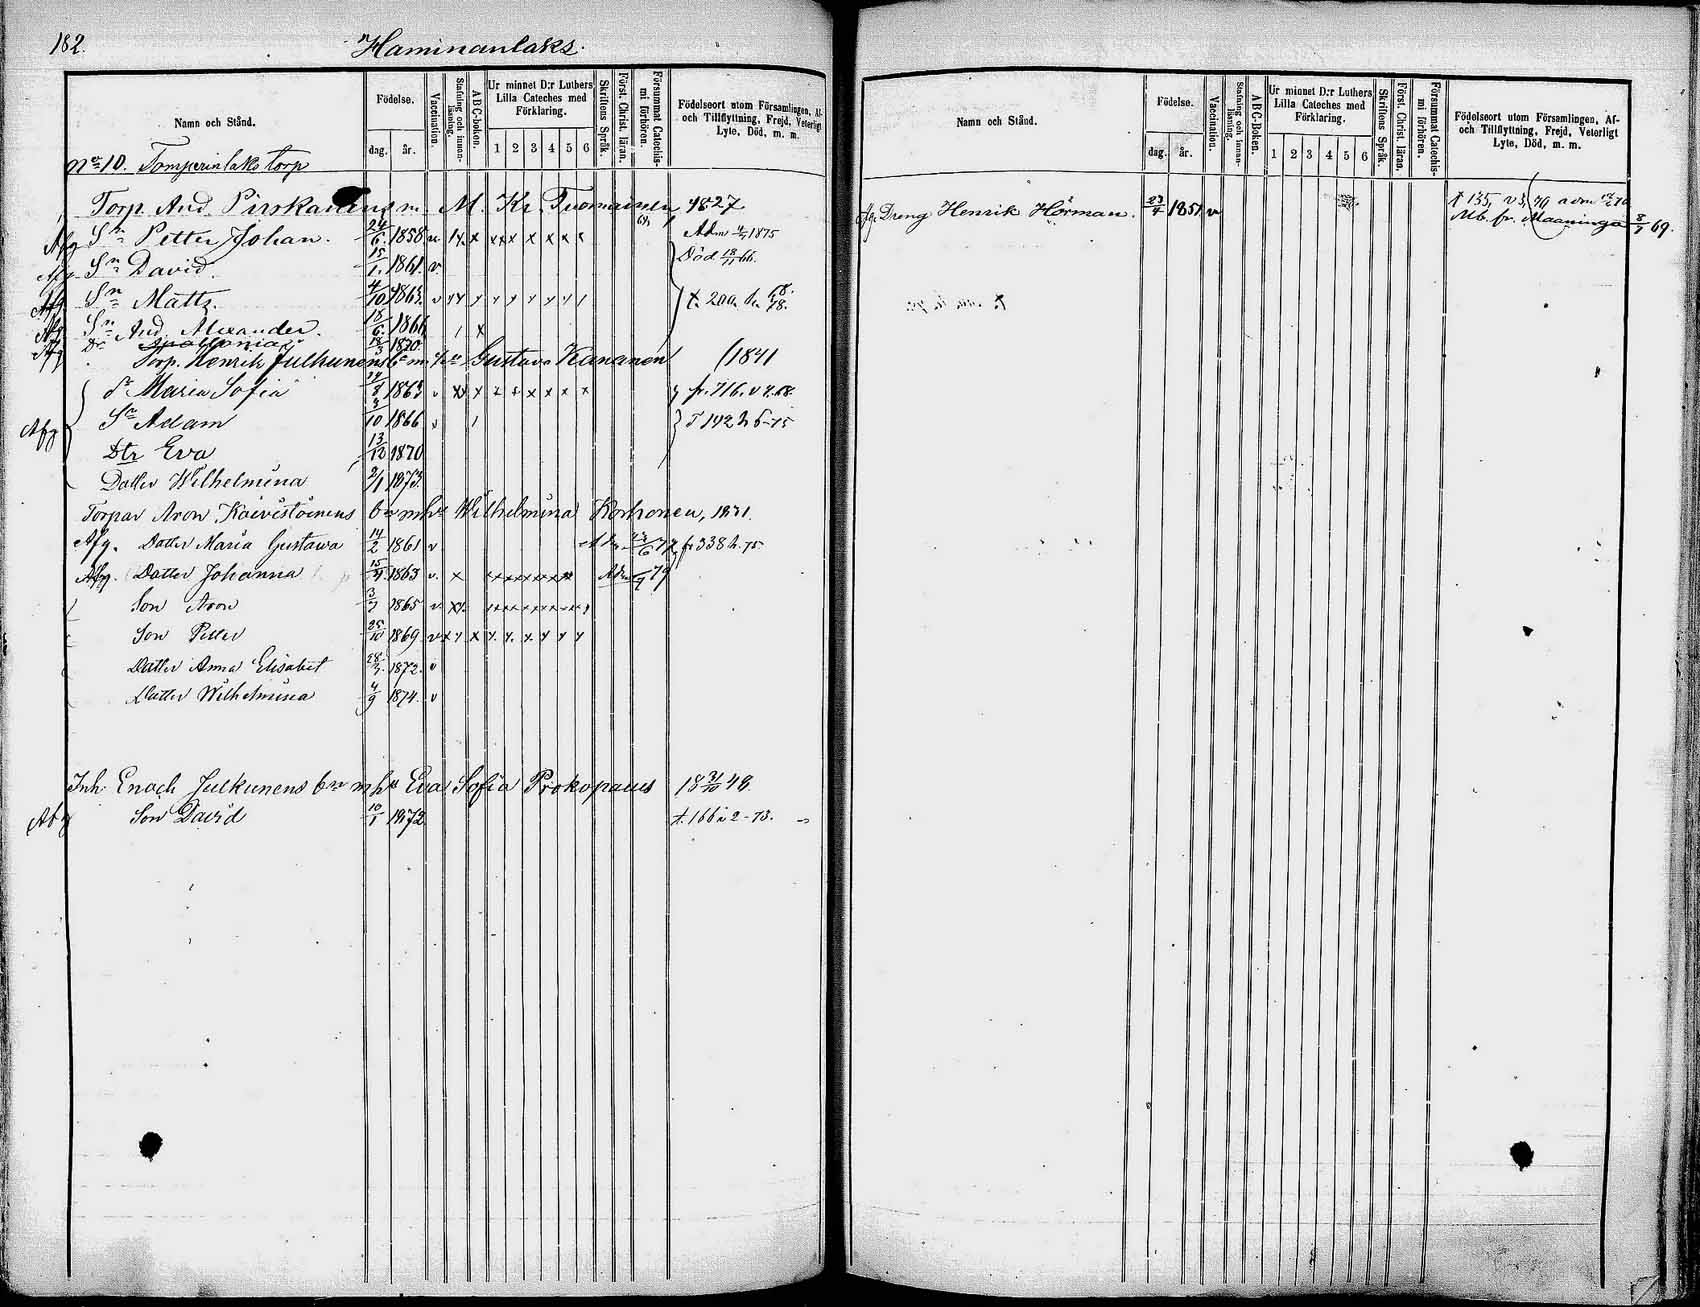 182.
Haminanlaks.
Namn och Stånd.
Födelse.
dag. år.
Vaccination.
Stafning och innanläsning.
ABC-boken.
Ur minnet D:r Luthers Lilla Cateches med Förklaring.
1 2 3 4 5 6
Skriftens Språk.
Först. Christ. läran.
Försummat Catechismi förhören.
Födelseort utom Församlingen, Af- och Tillflyttning, Frejd, Veterligt Lyte, Död, m. m.
No 10. Tomperinlaks torp
Torp. And. Pirskanens m. M. Kr. Tuomainen 1827
Afg Sn Petter Johan. 24/6 1858 v Adm 4/7 1875
Afg Sn David. 15/1 1861. v. Död 18/11 66.
Afg Sn Matts. 4/10 1863. v t. 200. h. 78.
Afg Sn And. Alexander. 18/6 1866
Afg Dr Apollonia 1870.
Torp. Henrik Julkunens bn m hu Gustava Kananen 1841
dr Maria Sofia 24/8 1863 v fr. 716. v 7. 68.
Afg Sn Adam 3/10 1866 v T 142 h 6-75
Dtr Eva 13/12 1870
Dotter Wilhelmina 2/1 1873.
Torpar Aron Koivistoinens bn m hu Wilhelmina Korhonen, 1831.
Afg. Dotter Maria Gustava 14/2 1861 v 338 h. 75
Afg. Dotter Johanna 15/4 1863 v. 79
Son Aron 3/7 1865 v
Son Petter 25/10 1869 v
Dotter Anna Elisabet 28/7 1872. v
Dotter Wilhelmina 4/9 1874. v
Inh. Enoch Julkunens bn m hu Eva Sofia Prokopaeus 18 31/10 48.
Afg Son David 10/1 1872 t. 166 a 2-73.
Namn och Stånd.
Födelse.
dag. år.
Vaccination.
Stafning och innanläsning.
ABC-Boken.
Ur minnet D:r Luthers Lilla Cateches med Förklaring.
1 2 3 4 5 6
Skriftens Språk.
Först. Christ. läran.
Försummat Catechismi förhören.
Födelseort utom Församlingen, Af- och Tillflyttning, Frejd, Veterligt Lyte, Död, m. m.
Afg. Dreng Henrik Hörman. 23/4 1851 v t 135, v 3, 70
Mb. fr. Maaninga 8/7 69.